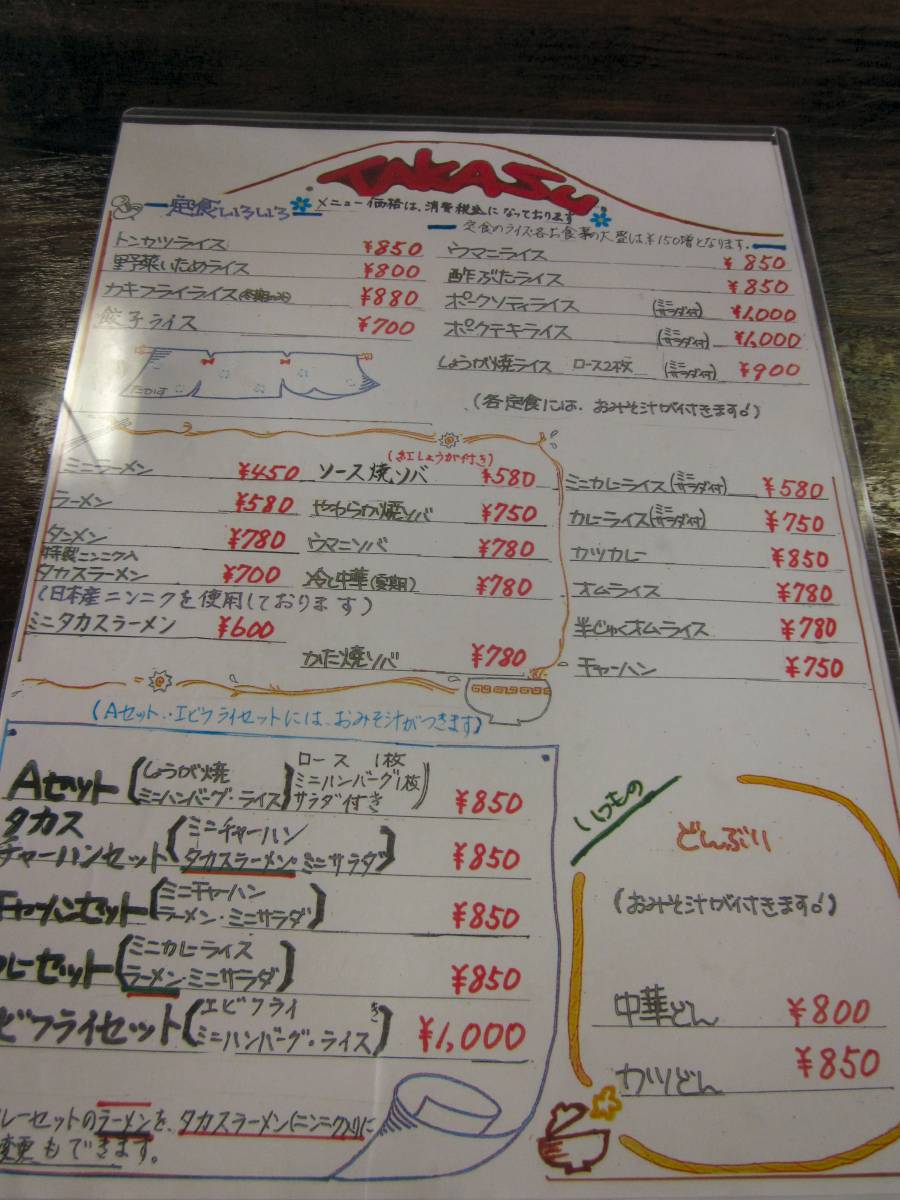 TAKASU
定食いろいろ
メニュー価格は、消費税込になっております
定食のライス各お食事の大盛は¥150増となります。
トンカツライス ¥850
野菜いためライス ¥800
カキフライライス ¥880
餃子ライス ¥700
ウマニライス ¥850
酢ぶたライス ¥850
ポークソティライス (ミニサラダ付) ¥1,000
ポークテキライス (ミニサラダ付) ¥1,000
しょうが焼ライス ロース2枚 (ミニサラダ付) ¥900
たかす
(各定食には、おみそ汁が付きます。)
ミニラーメン ¥450
ラーメン ¥580
タンメン ¥780
特製ニンニク入
タカスラーメン ¥700
(日本産ニンニクを使用しております)
ミニタカスラーメン ¥600
(紅しょうが付き)
ソース焼ソバ ¥580
やわらか焼ソバ ¥750
ウマニソバ ¥780
冷し中華(夏期) ¥780
かた焼ソバ ¥780
ミニカレーライス (ミニサラダ付) ¥580
カレーライス (ミニサラダ付) ¥750
カツカレー ¥850
オムライス ¥780
半じゅくオムライス ¥780
チャーハン ¥750
(Aセット・エビフライセットには、おみそ汁がつきます)
Aセット (しょうが焼 ミニハンバーグ・ライス) ロース 1枚 ミニハンバーグ1枚 サラダ付き ¥850
タカス
チャーハンセット (ミニチャーハン タカスラーメン・ミニサラダ) ¥850
チャーハンセット (ミニチャーハン ラーメン・ミニサラダ) ¥850
レーセット (ミニカレーライス ラーメン・ミニサラダ) ¥850
ビフライセット (エビフライ ミニハンバーグ・ライス) ¥1,000
レーセットのラーメンを、タカスラーメン(ニンニク入り)に
変更もできます。
いつもの
どんぶり
(おみそ汁が付きます。)
中華どん ¥800
カツどん ¥850